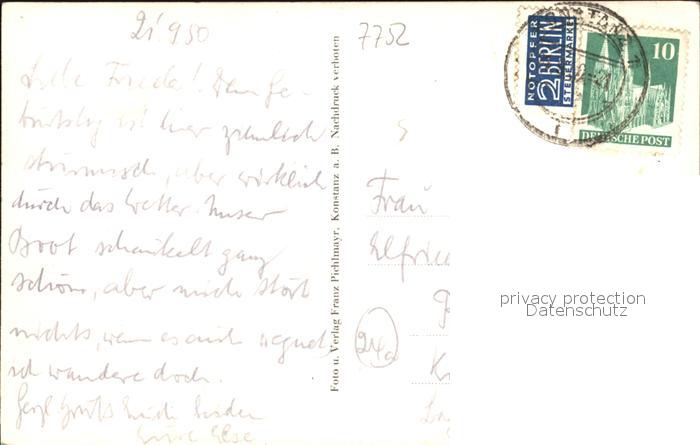 21 9 50
7752
Liebe Frieda! Dein Ge-
burtstag ist hier ziemlich
stürmisch, aber wirklich
durch das Wetter. Unser
Boot schaukelt ganz
schön, aber mich stört
nichts, wenn es auch regnet
ich wandere doch.
Herzl Grüße Euch beiden
Eure Else
Foto u. Verlag Franz Pichlmayr, Konstanz a. B. Nachdruck verboten
NOTOPFER
2 BERLIN
STEUERMARKE
KONSTANZ
10
DEUTSCHE POST
Frau
Elfried
privacy protection
Datenschutz